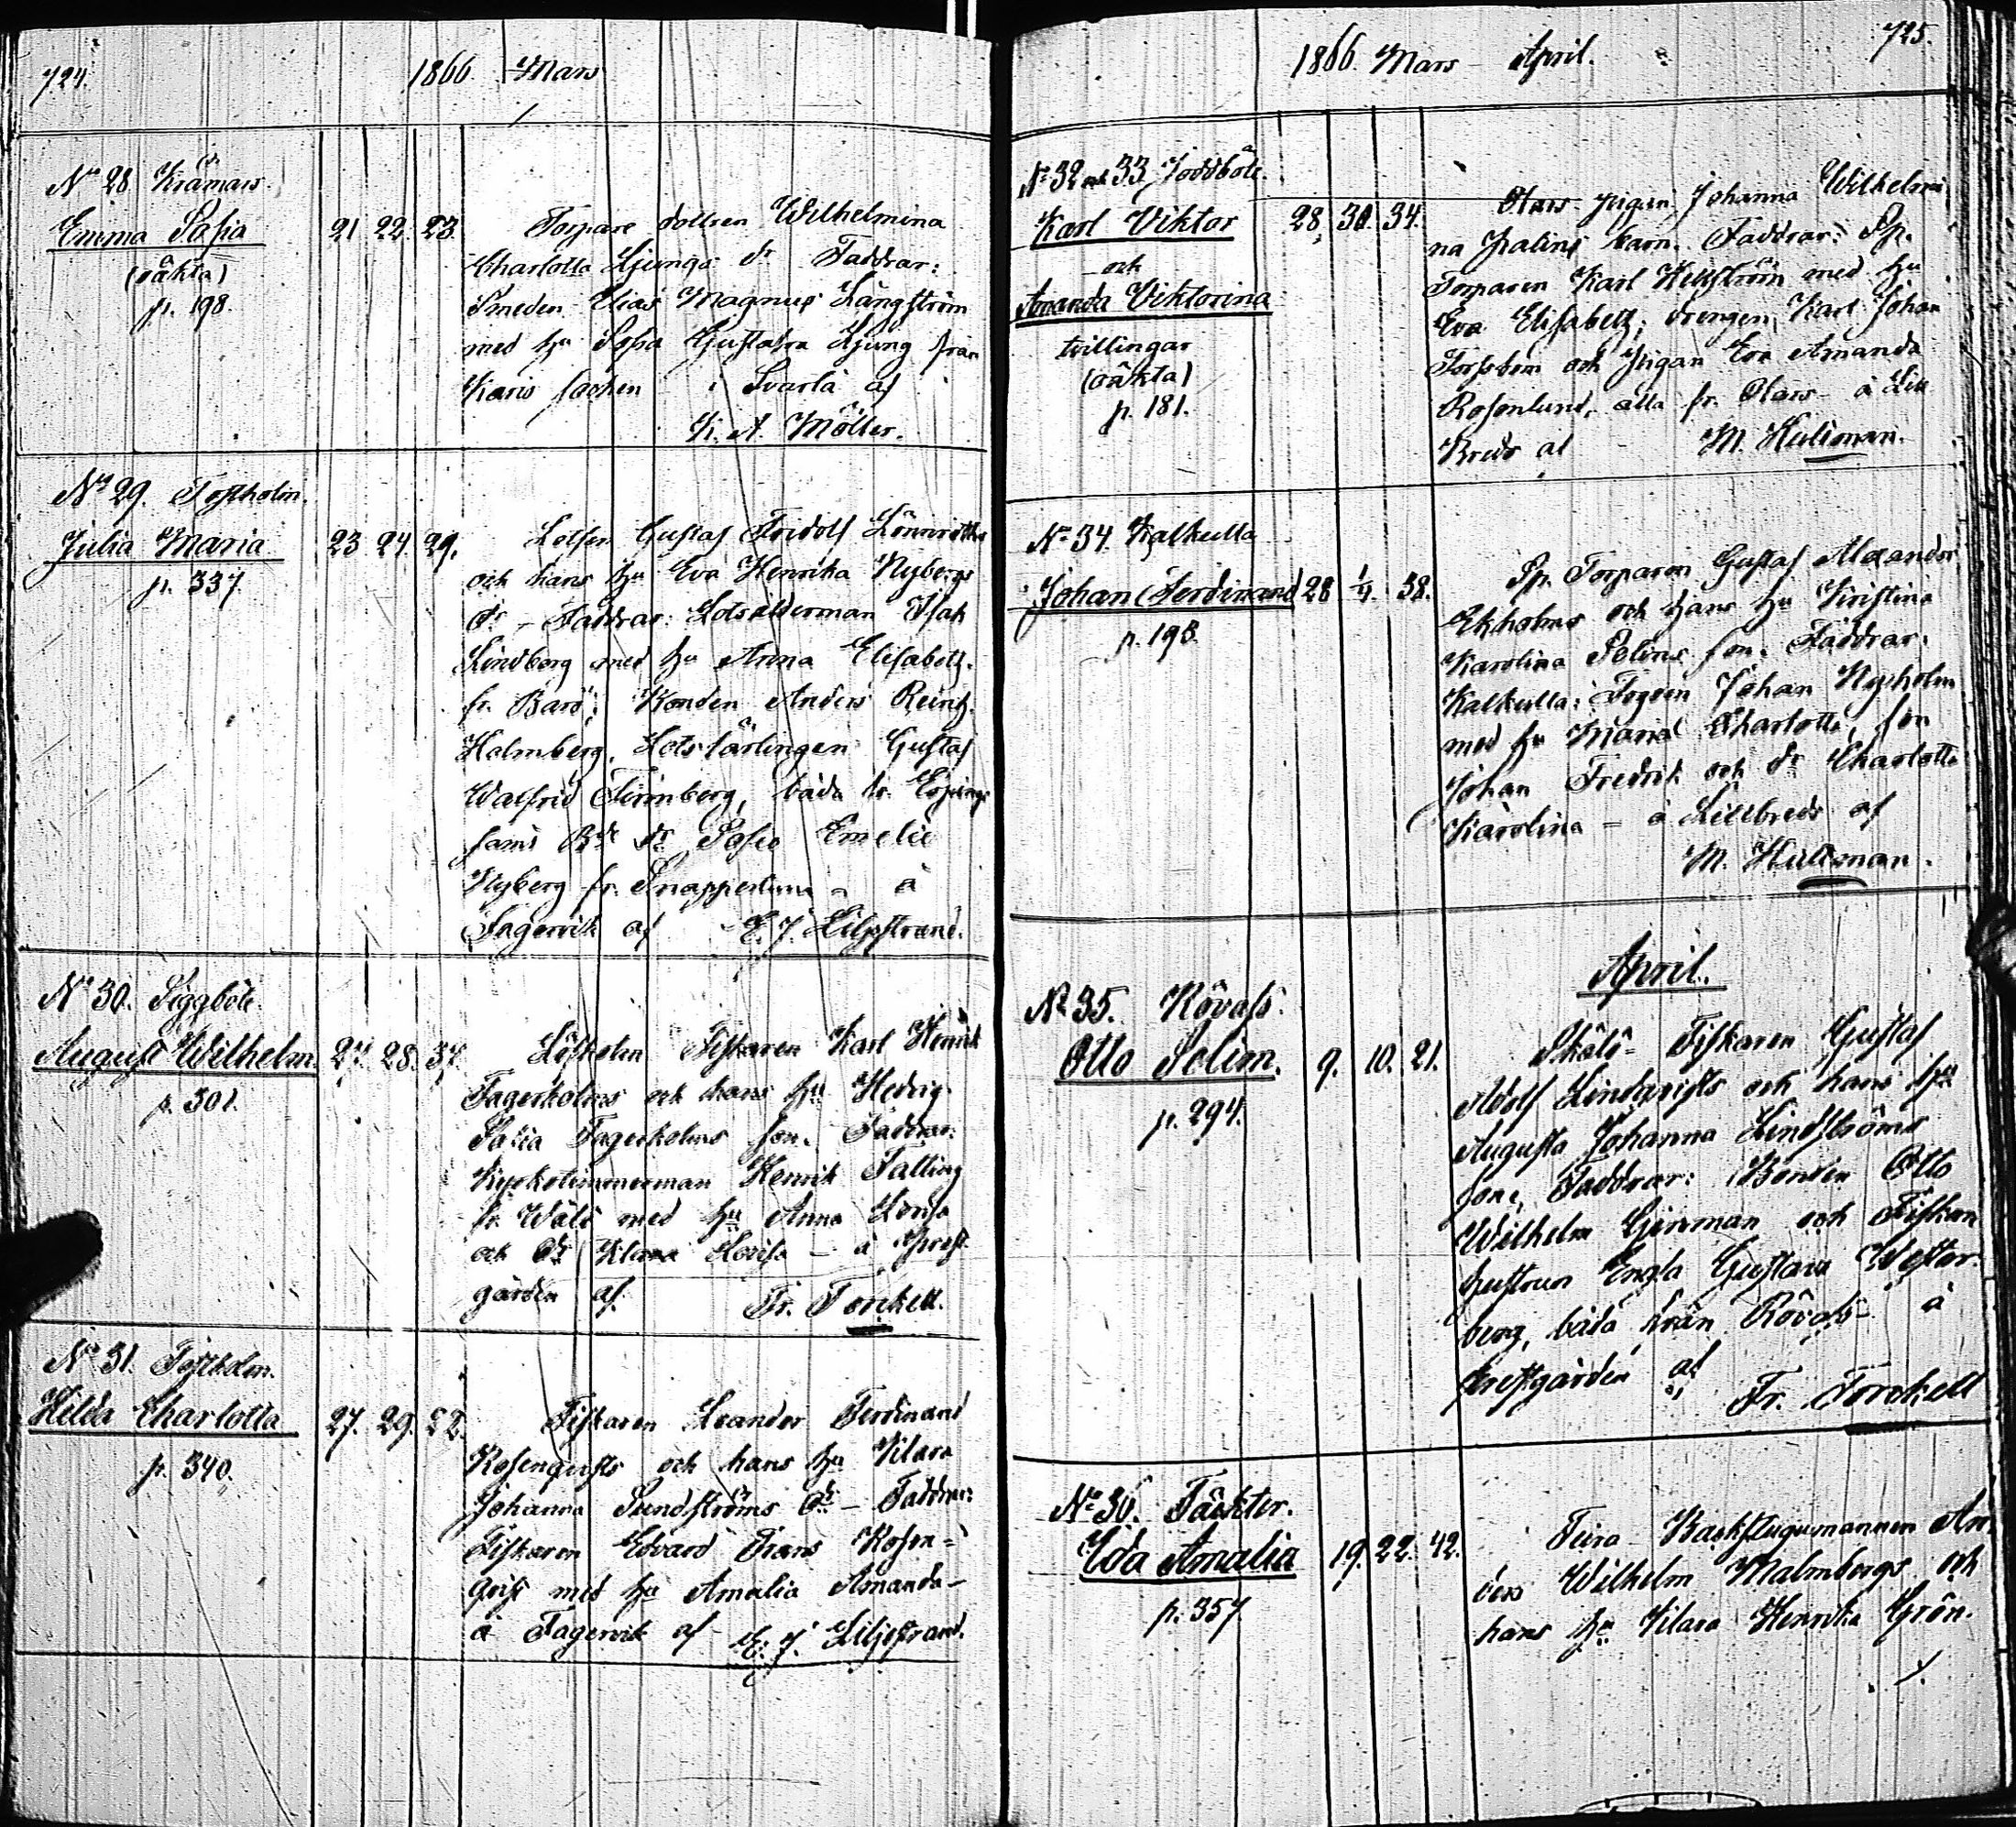 724.
1866 Mars
N:o 28 Krämars.
Emma Sofia
(oäkta)
p. 198.
21 22. 23.
Torpare dottren Wilhelmina
Charlotta Ljungs dr Faddrar:
Smeden Elias Magnus Långström
med hu Sofia Gustafva Ljung från
Karis socken i Svartå af
K. A. Möller.
N:o 29. Tostholm.
Julia Maria
p. 337.
23 24. 29.
Lotsen Gustaf Fridolf Lönnroths
och hans hu Eva Henrika Nybergs
dr - Faddrar: Lotsålderman Isak
Lindberg med hu Anna Elisabeth
fr. Barö; Bonden Anders Reinh.
Holmberg, Lotslärlingen Gustaf
Walfrid Törnberg, båda fr.
samt dr Sofia Emelie
Nyberg fr. Snappertuna - å
Fagervik af E. J. Liljestrand.
N:o 30. Siggböle.
August Wilhelm.
p. 301.
27. 28. 37.
Löfholm Fiskaren Karl Henrik
Fagerholms och hans hu Hedvig
Sofia Fagerholms son. Faddrar:
Kyrkotimmerman Henrik Salling
fr. Wålö med hu Anna Lovisa
och dr Klara Lovisa - å Prest-
gården af Fr. Forckell.
N:o 31. Tostholm.
Hilda Charlotta
p. 340.
27. 29. 22.
Fiskaren Leander Ferdinand
Rosenqvists och hans hu Klara
Johanna Sundströms dr - Faddrar:
Fiskaren Edvard Frans Rosen-
qvist med hu Amalia Amanda -
å Fagervik af E. J. Liljestrand.
1866. Mars - April.
725.
N:o 32 och 33 Joddböle.
Karl Viktor
och
Amanda Viktorina
tvillingar
(oäkta)
p. 181.
28. 30. 34.
Olars pigan Johanna Wilhelmi
na barn. Faddrar: Sp.
Torparen Karl Hellström med hu
Eva Elisabeth; drengen Karl Johan
Forsbom och pigan Eva Amanda
Rosenlund, alla fr. Olars - å Lill
Breds af M. Hultman.
N:o 34. Kalkulla
Johan Ferdinand
p. 198.
28 1/4. 38.
Sp. Torparen Gustaf Alexander
Ekholms och hans hu Kristina
Karolina Selins son. Faddrar:
Kalkulla: Fogden Johan Nyholm
med hu Maria Charlotta, son
Johan Fredrik och dr Charlotta
Karolina - å Lillbreds af
M. Hultman.
April.
N:o 35. Rövass.
Otto Selim.
p. 294.
9. 10. 21.
Skålö - Fiskaren Gustaf
Adolf Lindqvists och hans hu
Augusta Johanna Lindströms
son, Faddrar: Bonden Otto
Wilhelm Genman och Fiskare
hustrun Engla Gustava Wester-
berg, båda från Rövass - å
prestgården af Fr. Forckell
N:o 36. Täckter.
Ida Amalia
p. 357
19. 22. 42.
Backstugumannen An
ders Wilhelm Malmbergs och
hans hu Klara Henrika Grön.